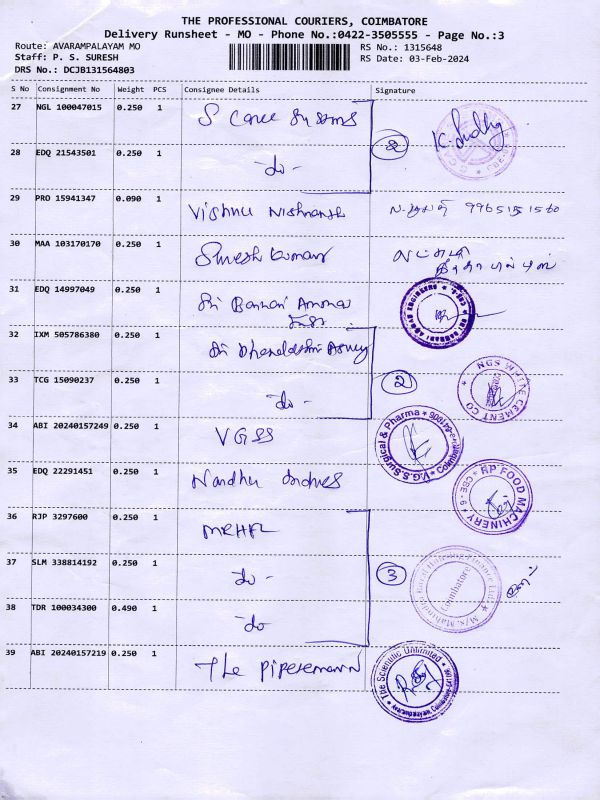 THE PROFESSIONAL COURIERS, COIMBATORE
Delivery Runsheet - MO - Phone No.:0422-3505555 - Page No.:3
Route: AVARAMPALAYAM MO
RS No.: 1315648
Staff: P. S. SURESH
RS Date: 03-Feb-2024
DRS No.: DCJB131564803
S No Consignment No Weight PCS Consignee Details Signature
27 NGL 100047015 0.250 1
28 EDQ 21543501 0.250 1 -do-
2
29 PRO 15941347 0.090 1 Vishnu
30 MAA 103170170 0.250 1 Suresh Kumar
31 EDQ 14997049 0.250 1 Sri Bannari Amman
32 IXM 505786380 0.250 1 Sri
33 TCG 15090237 0.250 1 -do-
2
NGS WHITE CEMENT CO
34 ABI 20240157249 0.250 1 VGSS
V.G.S.S. Surgical & Pharma
35 EDQ 22291451 0.250 1 Nandhu
RP FOOD MACHINERY * CBE-6
36 RJP 3297600 0.250 1 MRHFL
37 SLM 338814192 0.250 1 -do-
3
Coimbatore
38 TDR 100034300 0.490 1 -do-
39 ABI 20240157219 0.250 1 The
The Scientific Unlimited